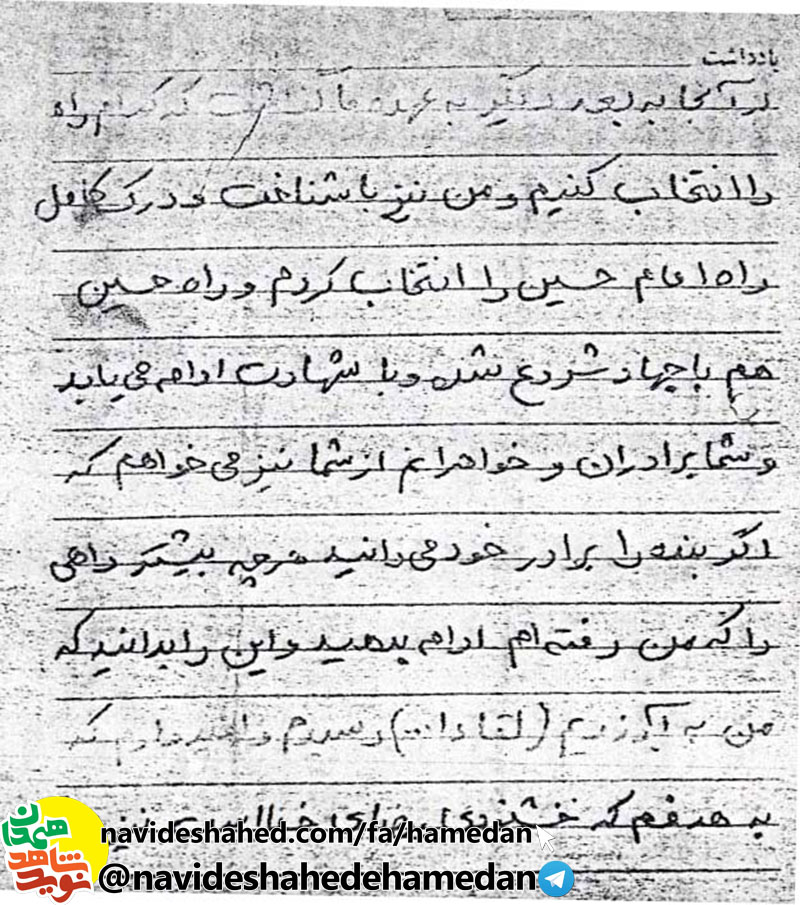 یادداشت
از آنجا به بعد دیگر به عهده ما گذاشت که کدام راه
را انتخاب کنیم و من نیز با شناخت و درک کامل
راه امام حسین را انتخاب کردم و راه حسین
هم با جهاد شروع شده و با شهادت ادامه می یابد
و شما برادران و خواهرانم از شما نیز می خواهم که
اگر بنده را برادر خود می دانید هر چه بیشتر راهی
را که من رفته ام ادامه بدهید و این را بدانید که
من به آرزویم (لقاء الله) رسیدم و امیدوارم که
به هدفم که خشنودی
navideshahed.com/fa/hamedan
@navideshahedehamedan
نوید شاهد همدان